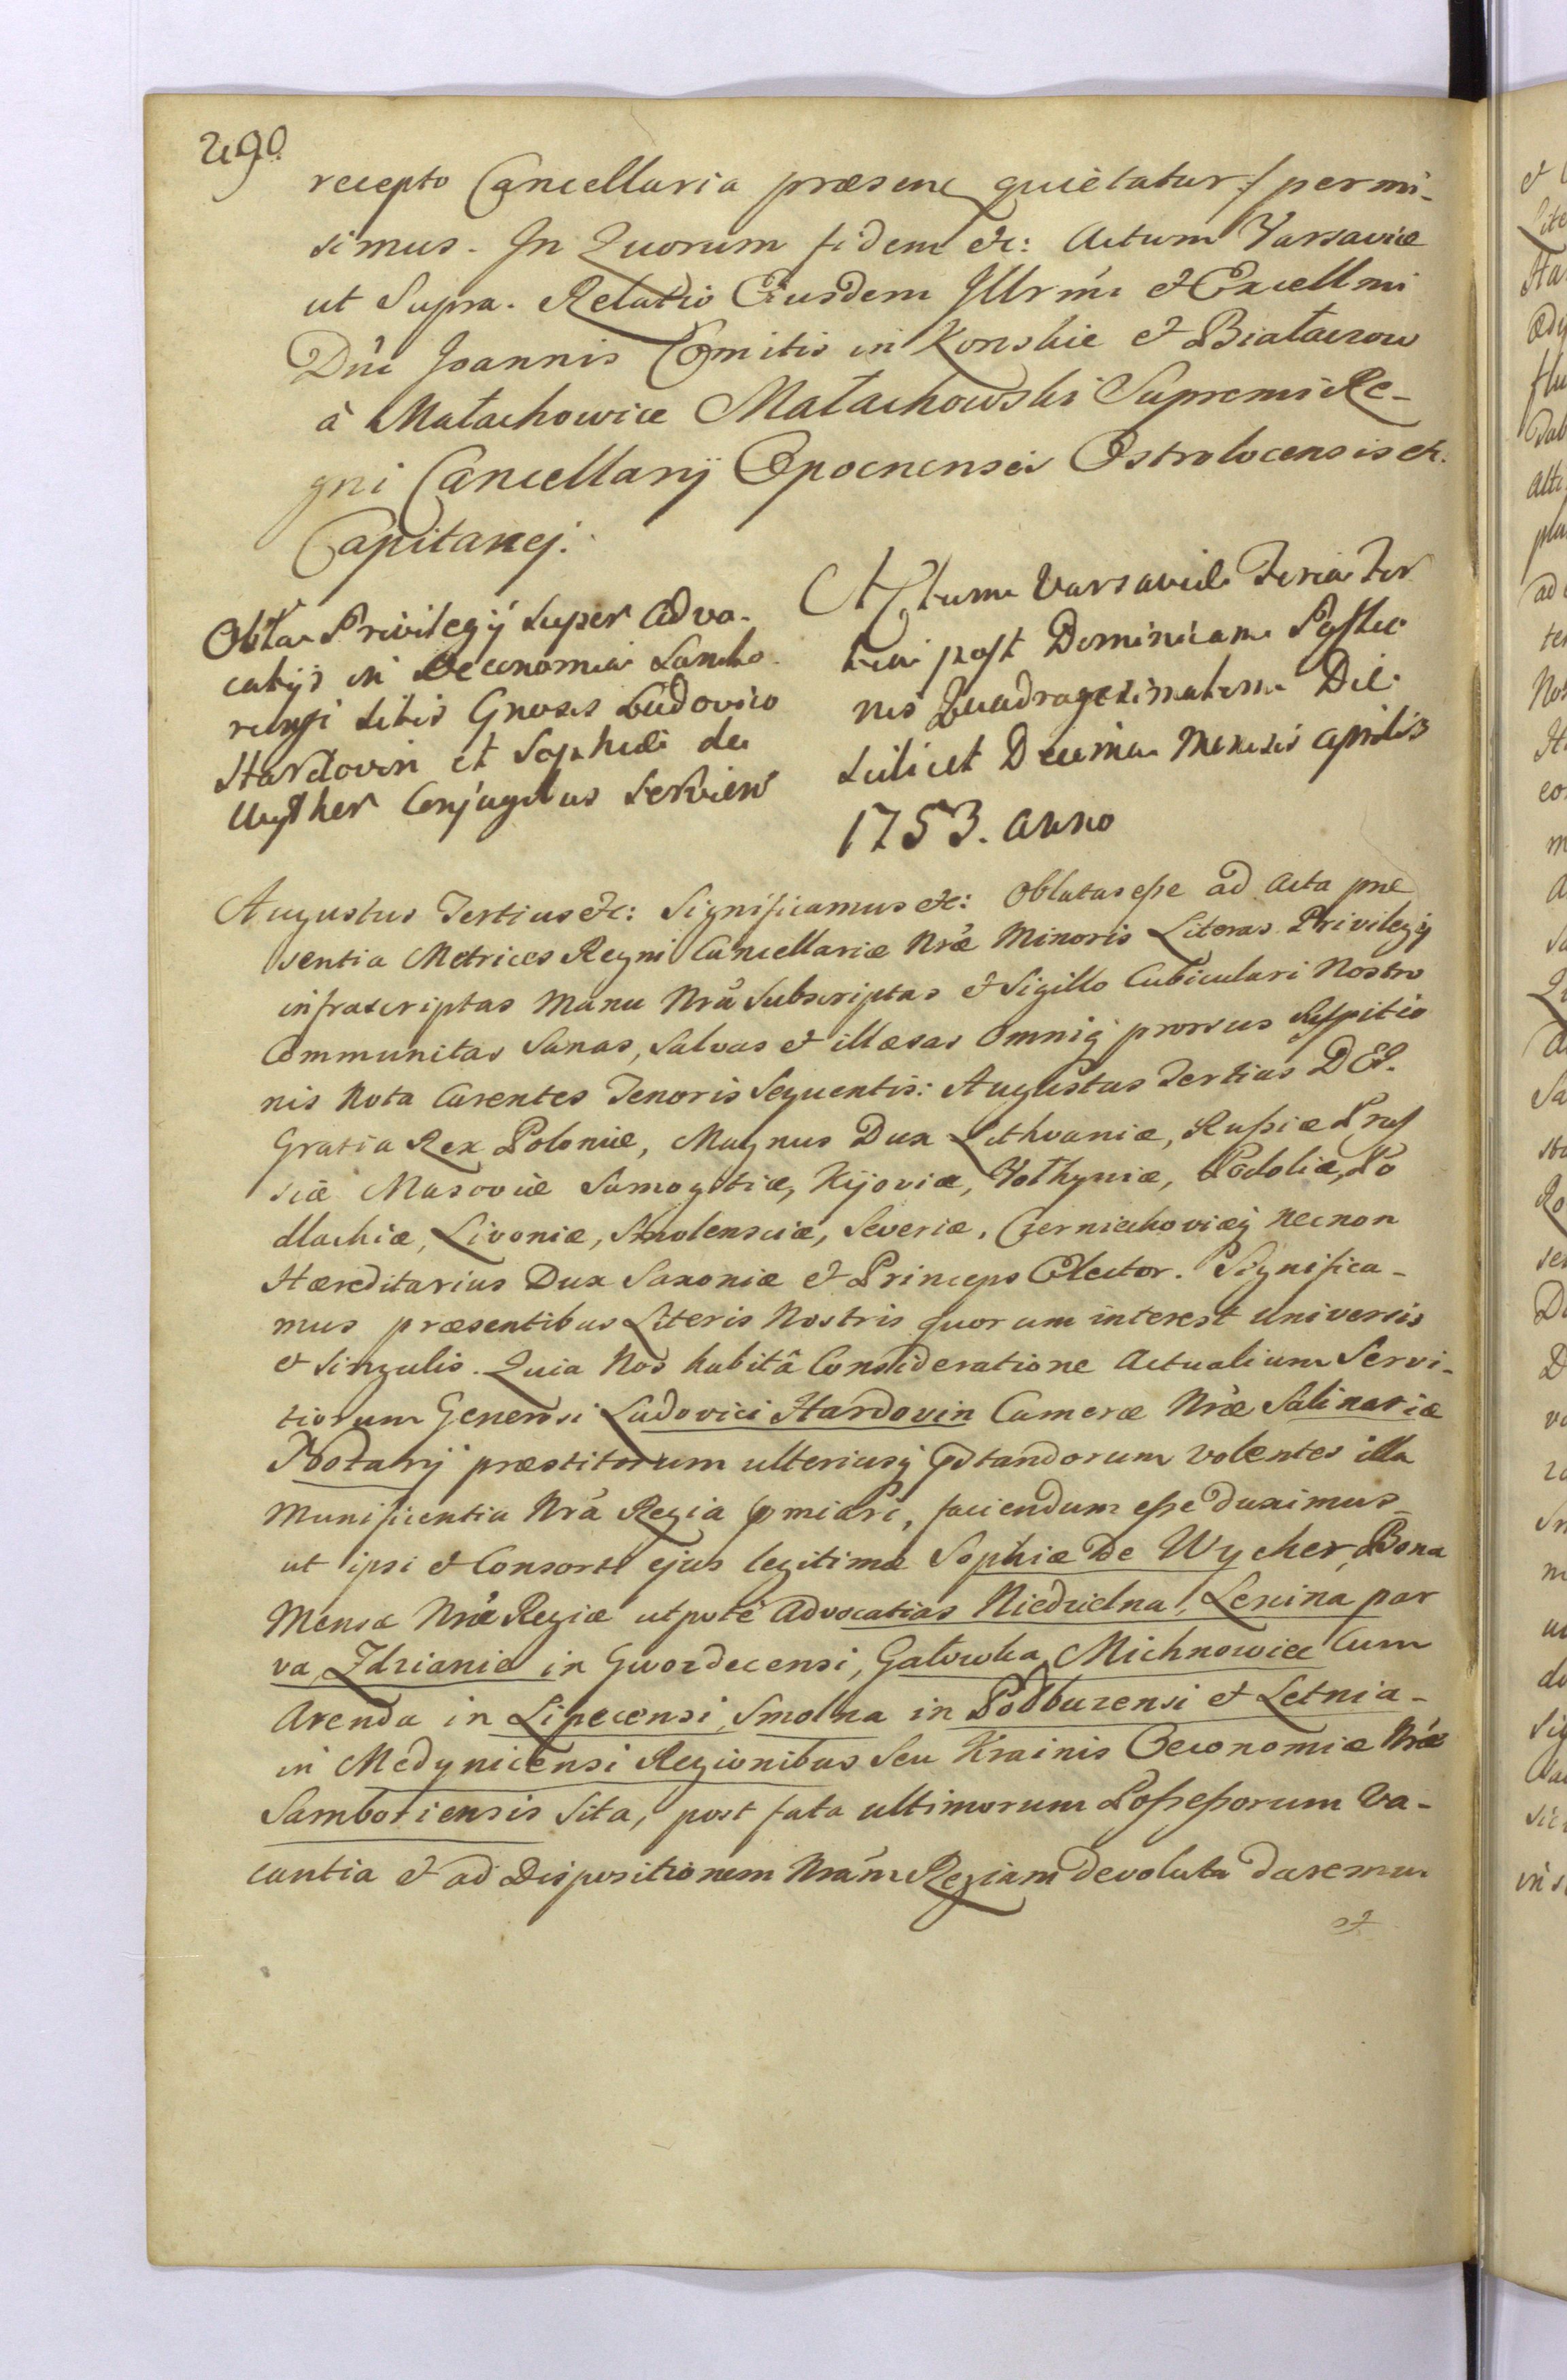 290.
recepto Cancellaria præsens quietatur :/ permi-
simus. In Quorum fidem etc: Actum Varsaviæ
ut Supra. Relatio Eiusdem Illrmi et Excellmi
Dni Joannis Comitis in Konskie et Białaczow
à Małachowice Małachowski Supremi Re-
gni Cancellarij Opocnensis Ostrolocensis etc.
Capitanej.
Oblta Privilegij super Advo-
catijs in Oeconomia Sambo-
riensi sitis Gnosis Ludovico
Hardovin et Sophiæ de
Wyther Conjugibus serviens
Actum Varsaviæ Feria Ter
tia post Dominicam Passio
nis Quadragesimalem Die
scilicet Decima Mensis Aprilis
1753. Anno
Augustus Tertius etc: Significamus etc: Oblatas esse ad Acta præ
sentia Metrices Regni Cancellariæ Nræ Minoris Literas Privilegij
infrascriptas Manu Nra Subscriptas et Sigillo Cubiculari Nostro
Communitas Sanas, Salvas et illæsas Omniq prorsus Suspitio
nis Nota Carentes Tenoris Sequentis: Augustus Tertius DEI.
Gratia Rex Poloniæ, Magnus Dux Lithvaniæ, Russiæ Prus
siæ Masoviæ Samogitiæ, Kijoviæ, Volhyniæ, Podoliæ, Po
dlachiæ, Livoniæ, Smolensciæ, Severiæ, Czerniechoviæq necnon
Hæreditarius Dux Saxoniæ et Princeps Elector. Significa-
mus præsentibus Literis Nostris quorum interest universis
et singulis. Quia Nos habitâ Consideratione Actualium Servi-
tiorum Generosi Ludovici Hardovin Cameræ Nræ Salinariæ
Notarij præstitorum ulteriusq præstandorum volentes illa
Munificentia Nra Regia præmiari, faciendum esse duximus
ut ipsi et Consorti ejus legitimæ Sophiæ De Wycher, Bona
Mensæ Nræ Regiæ utpote Advocatias Niedzielna, Lenina par
va Zdzianie in Gwozdecensi, Gałowka, Michnowiec Cum
Arenda in Lipecensi, Smolna in Podbuzensi et Letnia
in Medynicensi Regionibus Seu Krainis Oeconomiæ Nræ
Samboriensis Sita, post fata ultimorum Possessorum Va-
cantia et ad Dispositionem Nram Regiam devoluta daremus
et